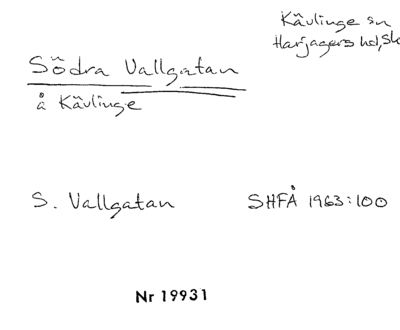 Kävlinge sn
Harjagers hd, Sk
Södra Vallgatan
å Kävlinge
S. Vallgatan SHFÅ 1963:100
Nr 19931